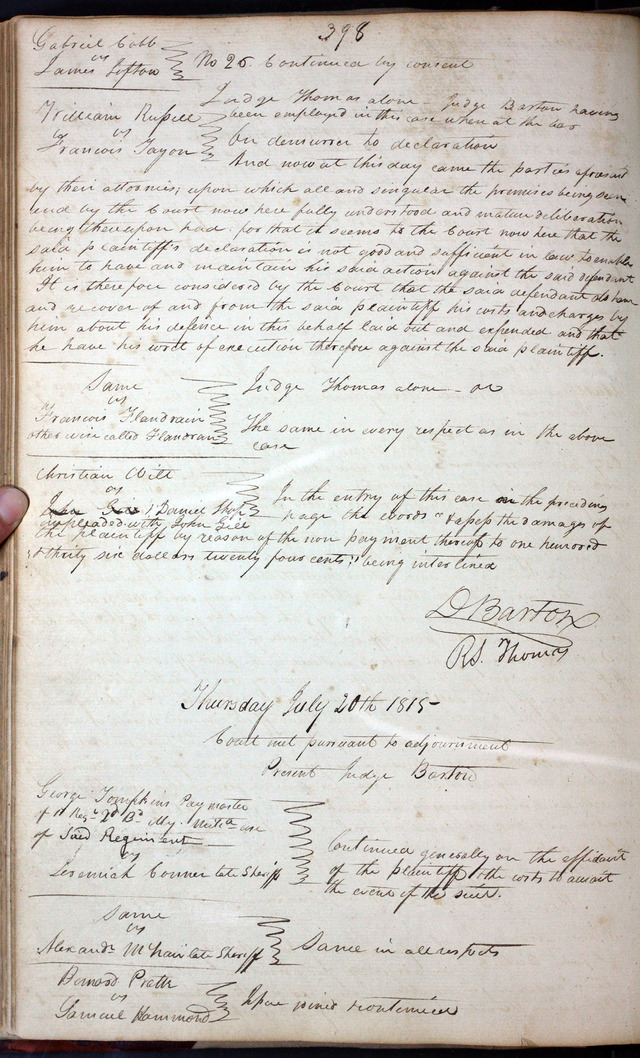 398
Gabriel Cobb
vs
James Lofton
No 26. Continued by consent
William Russell
vs
Francois Tayon
Judge Thomas alone - Judge Barton having
been employed in this case when at the bar
On demurrer to declaration
And now at this day came the parties aforesaid
by their attornies; upon which all and singular the premises being seen
and by the Court now here fully understood and mature deliberation
being thereupon had. for that it seems to the Court now here that the
said plaintiff's declaration is not good and sufficient in law to enable
him to have and maintain his said action against the said defendant
It is therefore considered by the Court that the said defendant do have
and recover of and from the said plaintiff his costs and charges by
him about his defence in this behalf laid out and expended and that
he have his writ of execution therefore against the said plaintiff.
Same
vs
Francois Flandrain
otherwise called Flandrau
Judge Thomas alone - or
The same in every respect as in the above
case
Christian Wilt
vs
Daniel Shop
impleaded with John Gill
In the entry of this case on the preceding
page the words "& assess the damages of
the plaintiff by reason of the non payment thereof to one hundred
& thirty six dollars twenty four cents," being interlined
D Barton
R.S. Thomas
Thursday July 20th 1815-
Court met pursuant to adjournment
Present Judge Barton
George Tompkins Paymaster
of 1t Regt 2d Bd My. Militia use
of Said Regiment
vs
Jeremiah Conner late Sheriff
Continued generally on the affidavit
of the plaintiff & the costs to await
the event of the suit.
Same
vs
Alexandr McNair late Sheriff
Same in all respects
Bernard Pratte
vs
Samuel Hammond
Issue joined & continued